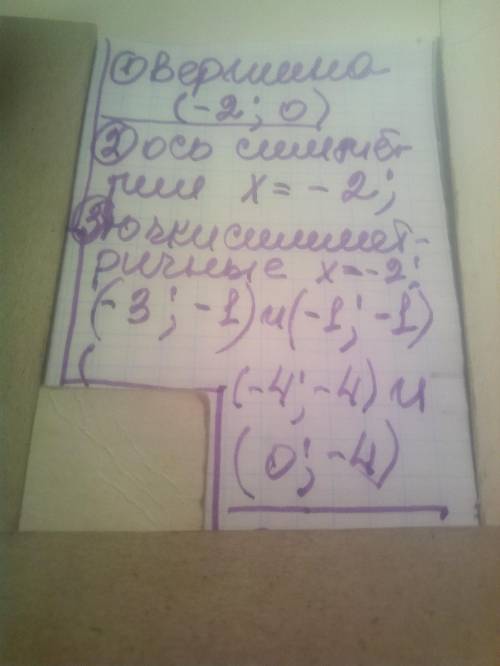 ① Вершина
(-2; 0)
② ось симмет-
рии x = -2;
③ точки симмет-
ричные x = -2;
(-3; -1) и (-1; -1)
(
(-4; -4) и
(0; -4)